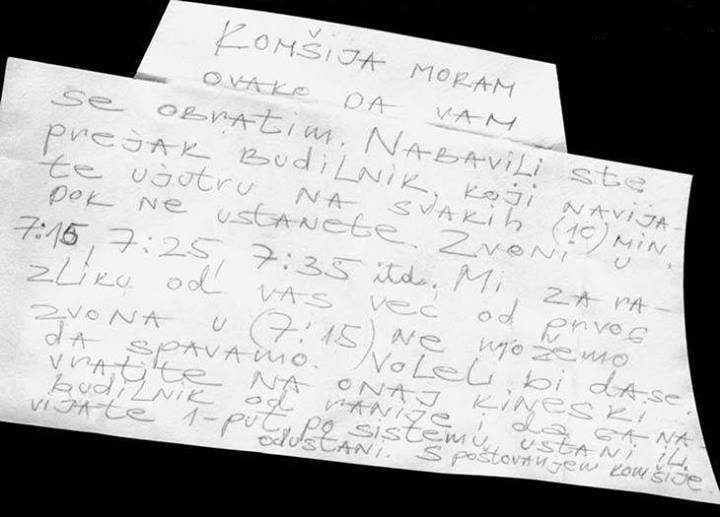 KOMŠIJA MORAM
OVAKO DA VAM
se OBRATIM. NABAVILI STE
PREJAK BUDILNIK, KOJI NAVIJA-
TE UJUTRU NA SVAKIH (10) MIN.
DOK NE USTANETE. ZVONI U
7:15, 7:25, 7:35 itd. Mi ZA RA-
ZLIKU od VAS VEĆ od PRVOG
ZVONA U (7:15) NE MOŽEMO
DA SPAVAMO. VOLELI bi DA SE
VRATITE NA ONAJ KINESKI
BUDILNIK OD RANIJE i DA GA NA-
VIJATE 1-PUT, PO SISTEMU USTANI ILI
ODUSTANI. S POŠTOVANJEM KOMŠIJE.